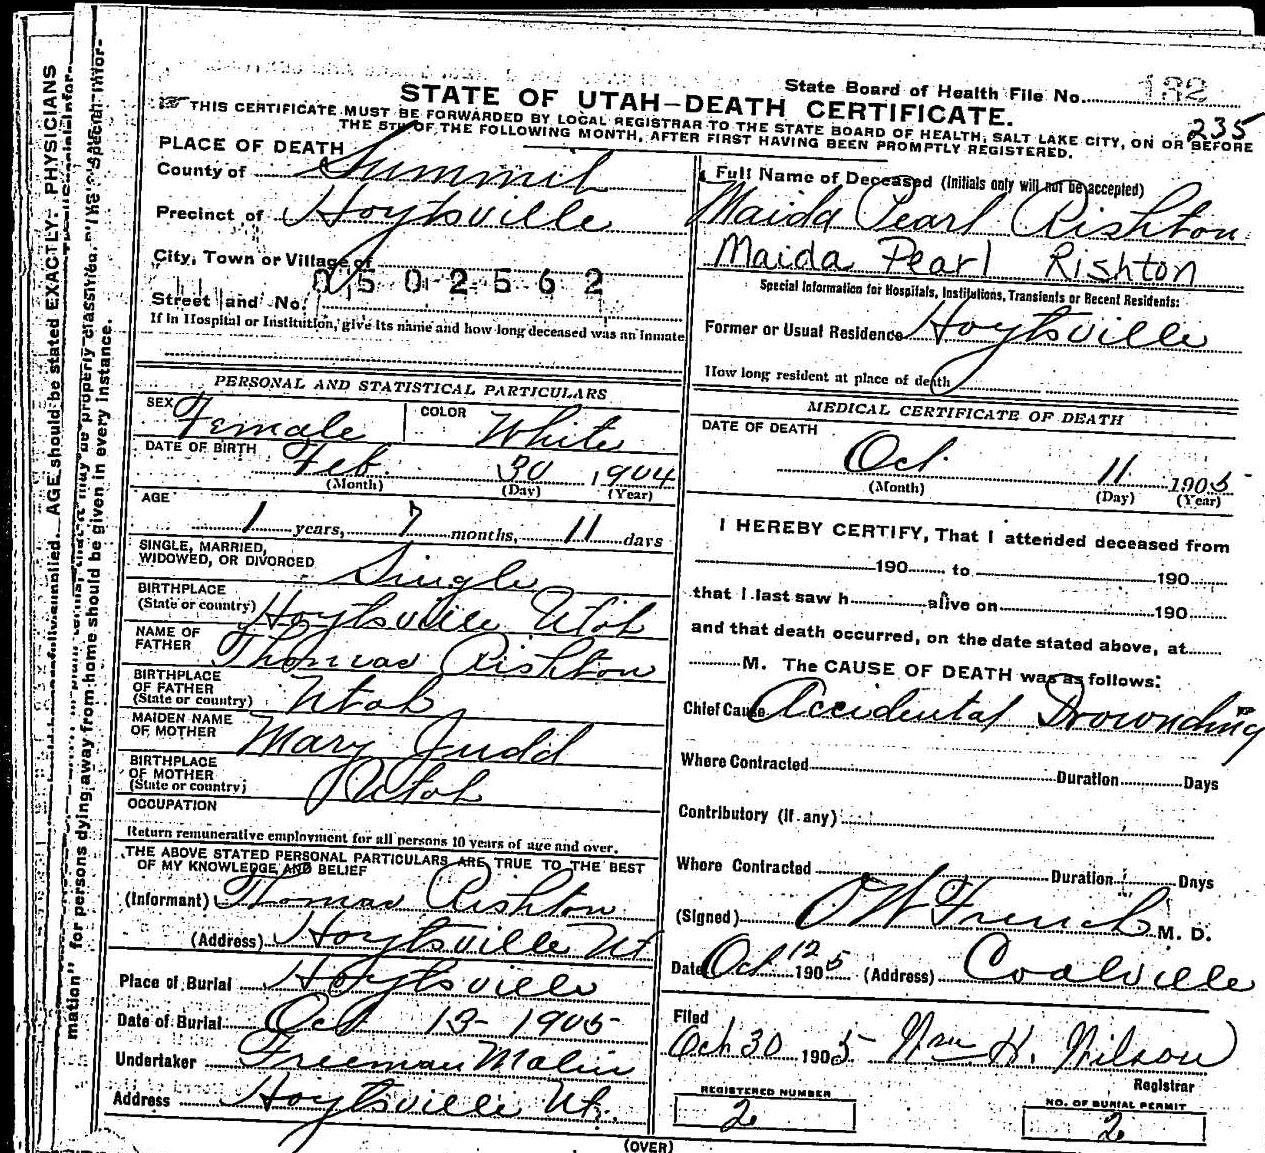 State Board of Health File No. 132
STATE OF UTAH—DEATH CERTIFICATE.
235
THIS CERTIFICATE MUST BE FORWARDED BY LOCAL REGISTRAR TO THE STATE BOARD OF HEALTH, SALT LAKE CITY, ON OR BEFORE
THE 5TH OF THE FOLLOWING MONTH, AFTER FIRST HAVING BEEN PROMPTLY REGISTERED.
PLACE OF DEATH
County of Summit
Precinct of Hoytsville
City, Town or Village of
0502562
Street and No.
If in Hospital or Institution, give its name and how long deceased was an inmate
PERSONAL AND STATISTICAL PARTICULARS
SEX Female COLOR White
DATE OF BIRTH Feb. 30 1904
(Month) (Day) (Year)
AGE
1 years, 7 months, 11 days
SINGLE, MARRIED,
WIDOWED, OR DIVORCED Single
BIRTHPLACE
(State or country) Hoytsville Utah
NAME OF
FATHER Thomas Rishton
BIRTHPLACE
OF FATHER
(State or country) Utah
MAIDEN NAME
OF MOTHER Mary Judd
BIRTHPLACE
OF MOTHER
(State or country) Utah
OCCUPATION
Return remunerative employment for all persons 10 years of age and over.
THE ABOVE STATED PERSONAL PARTICULARS ARE TRUE TO THE BEST
OF MY KNOWLEDGE AND BELIEF
(Informant) Thomas Rishton
(Address) Hoytsville Ut
Place of Burial Hoytsville
Date of Burial Oct 13- 1905
Undertaker Freeman Malin
Address Hoytsville Ut.
Full Name of Deceased (Initials only will not be accepted)
Maida Pearl Rishton
Maida Pearl Rishton
Special Information for Hospitals, Institutions, Transients or Recent Residents:
Former or Usual Residence Hoytsville
How long resident at place of death
MEDICAL CERTIFICATE OF DEATH
DATE OF DEATH
Oct. 11 1905
(Month) (Day) (Year)
I HEREBY CERTIFY, That I attended deceased from
190 to 190
that I last saw h alive on 190
and that death occurred, on the date stated above, at
M. The CAUSE OF DEATH was as follows:
Chief Cause Accidental Drownding
Where Contracted Duration Days
Contributory (if any)
Where Contracted Duration Days
(Signed) O W French M. D.
Date Oct 12 1905 (Address) Coalville
Filed
Oct 30 1905 Wm H. Wilson
Registrar
REGISTERED NUMBER
2
NO. OF BURIAL PERMIT
2
(OVER)
AGE should be stated EXACTLY. PHYSICIANS
may be properly classified. The "Special Infor-
mation" for persons dying away from home should be given in every instance.